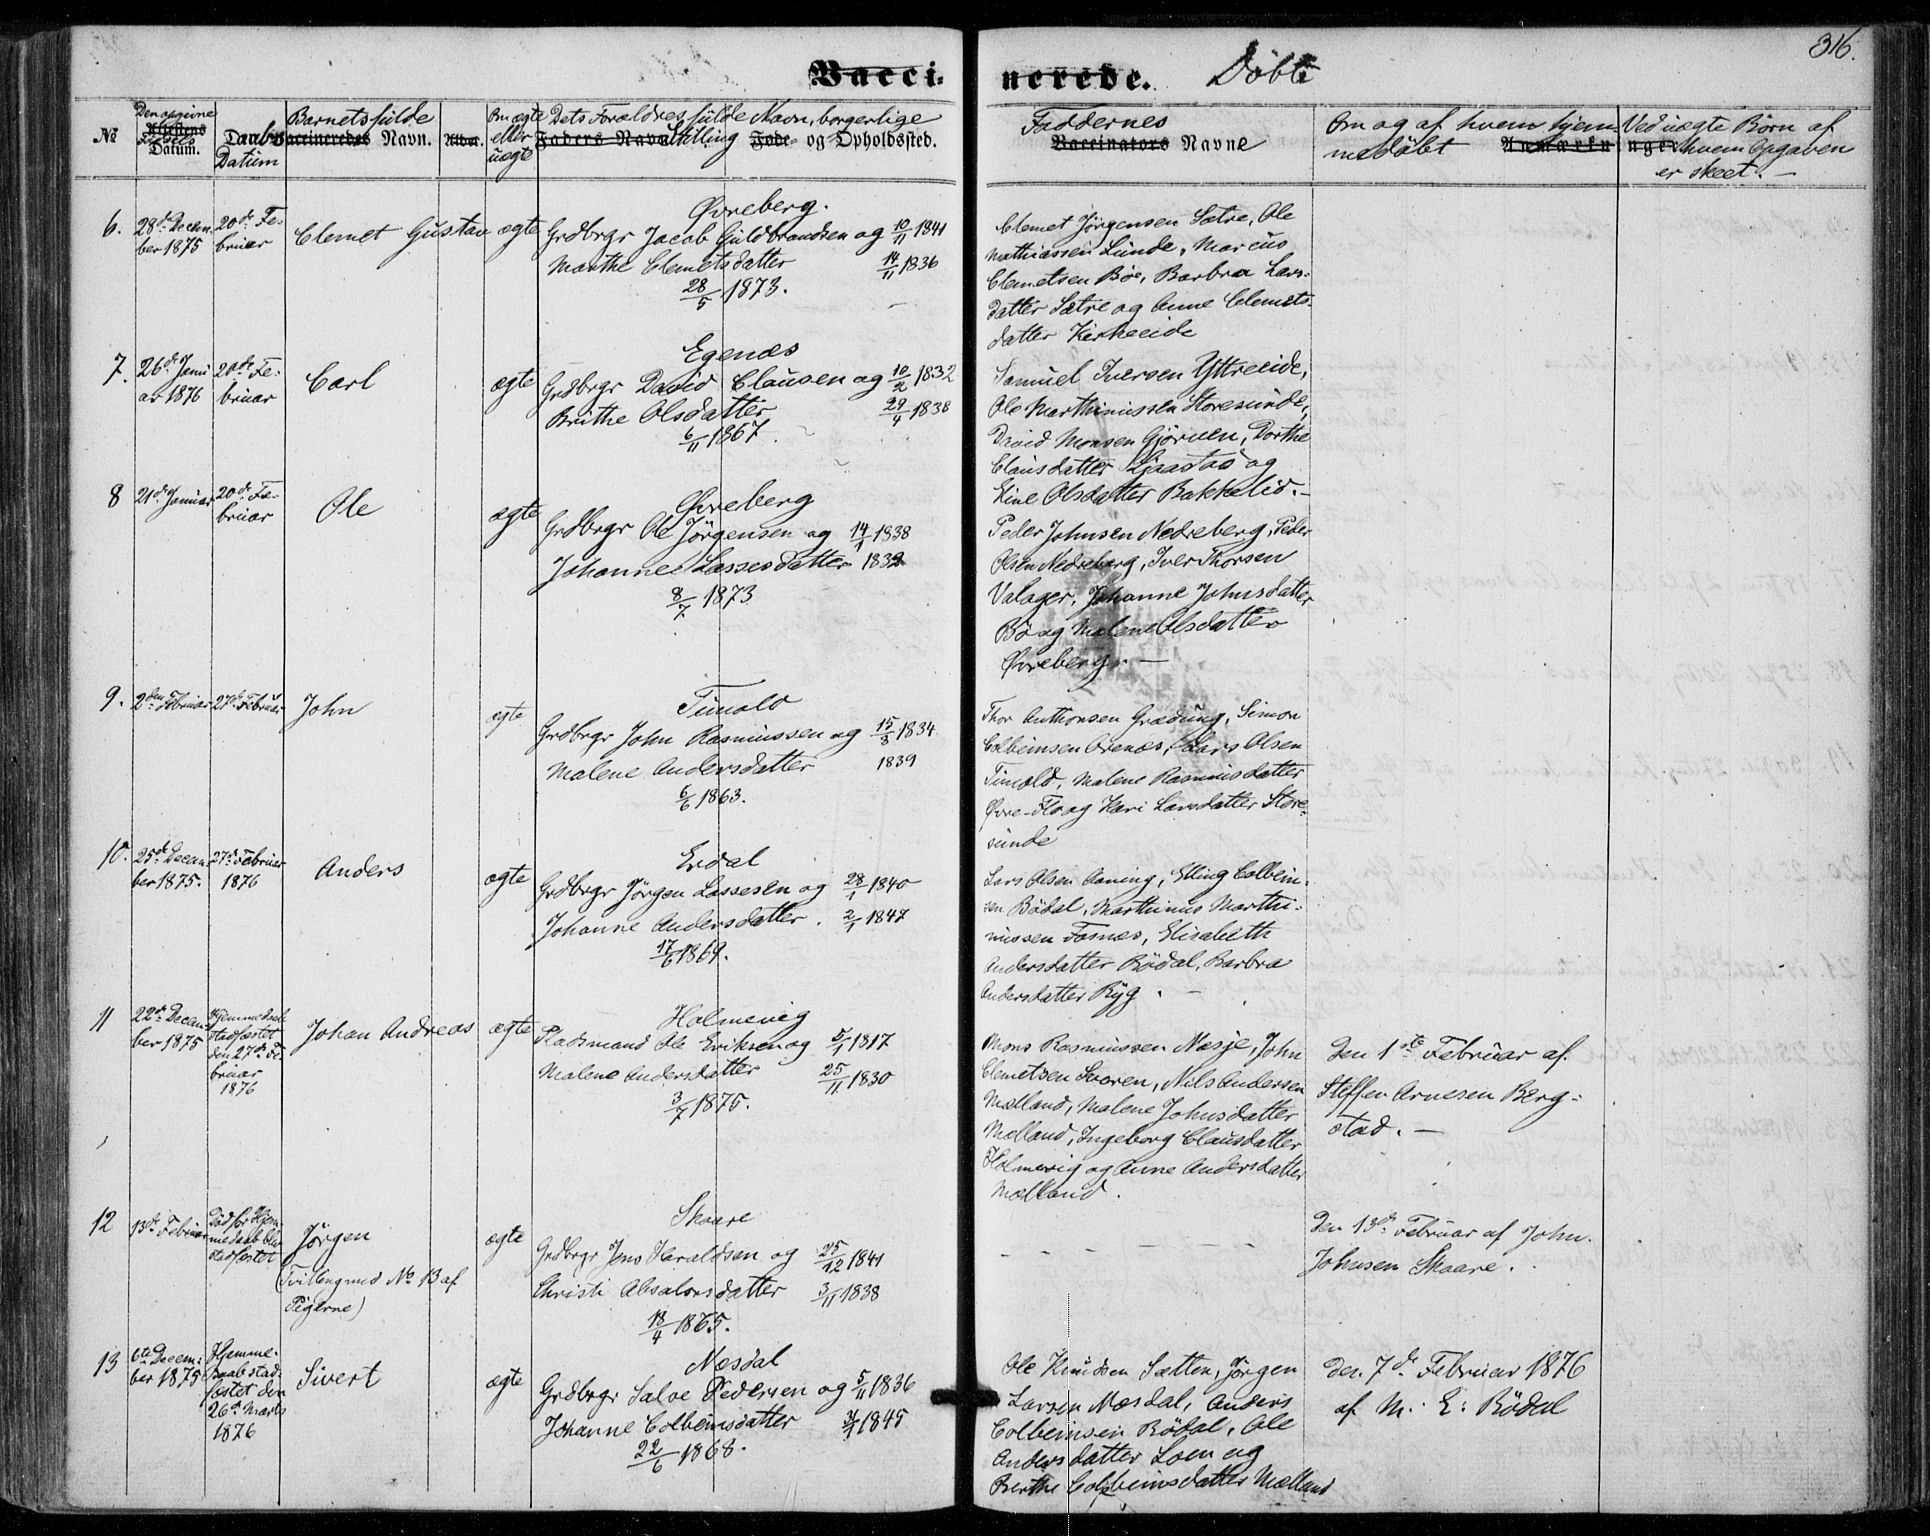 316.
Vacci-
nerede. Döbte
№
Den opgivne
Fødsels
Datum.
Daabs
Datum
Barnets fulde
Vaccineredes Navn.
Alder.
Om ægte
eller
uægte
Dets Forældres fulde Navn, borgerlige
Faders Navn Stilling Føde- og Opholdssted.
Faddernes
Vaccinators Navne
Om og af hvem hjem-
medöbt
Anmærkninger
Ved uægte Börn af
hvem Opgaven
er skeet. —
6.
28de Decem-
ber 1875
20de Fe-
bruar
Clemet Gustav
ægte
Øvreberg.
Grdbrgr Jacob Guldbrandsen og 10/11 1841
Marthe Clemetsdatter 14/11 1836
28/5 1873.
Clemet Jörgensen Sætre, Ole
Mathiassen Lunde, Marcus
Clemetsen Böe, Barbra Lars-
datter Sætre og Anne Clemets-
datter Kirkeeide
7.
26de Janu
ar 1876
20de Fe-
bruar
Carl
ægte
Egenæs
Grdbrgr David Clausen og 10/2 1832
Brithe Olsdatter 29/4 1838
6/11 1867.
Samuel Iversen Yttreeide,
Ole Marthinussen Storesunde,
David Monsen Gjörven, Dorthe
Clausdatter Ljaastad og
Eline Olsdatter Bakkelid. -
8
21de Januar
20de Fe-
bruar
Ole
ægte
Øvreberg
Grdbrgr Ole Jörgensen og 14/1 1838
Johanne Lassesdatter 1832
8/7 1873
Peder Johnsen Nedreberg, Peder
Olsen Nedreberg, Iver Thorsen
Valager, Johanne Johnsdatter
Bö og Malene Olsdatter
Øvreberg. —
9.
2den Februar
27de Februar
John
ægte
Tunold
Grdbrgr John Rasmussen og 15/8 1834
Malene Andersdatter 1839
6/6 1863.
Thor Anthonsen Grædung, Simon
Colbeinsen Ørenæs, Lars Olsen
Tunold, Malene Rasmusdatter
Øvre-Flo og Kari Larsdatter Store-
sunde
10.
25de Decem-
ber 1875.
27de Februar
1876
Anders
ægte
Erdal
Grdbrgr Jörgen Lassesen og 28/1 1840
Johanne Andersdatter. 2/1 1847
17/6 1869.
Lars Olsen Aaning, Elling Colbein-
sen Bödal, Marthinus Marthi-
nussen Fosnæs, Elisabeth
Andersdatter Bödal, Barbra
Andersdatter Ryg. -
11
22de Decem-
ber 1875
Hjemmedaab
stadfæstet
den 27de Fe-
bruar
1876
Johan Andreas
ægte
Holmevig
Pladsmand Ole Eriksen og 5/1 1817
Malene Andersdatter 25/11 1830
3/7 1875.
Mons Rasmussen Næsje, John
Clemetsen Svoren, Nils Andersen
Mælland, Malene Johnsdatter
Mælland, Ingeborg Clausdatter
Holmevig og Anne Andersdatter
Mælland.
Den 1ste Februar af
Steffen Arnesen Berg-
stad. —
12
13de Februar
Död för Hjem-
medaab blev
stadfæstet
Jörgen
(Tvilling med No 13 af
Pigerne)
ægte
Skaare
Grdbrgr Jens Haraldsen og 25/12 1841
Christi Absalonsdatter 3/11 1838
18/4 1865.
- - - - - - -
Den 13de Februar af John
Johnsen Skaare.
13
6te Decem-
ber 1875
Hjemme-
daab stad-
fæstet den
26de Marts
1876
Sivert
ægte
Næsdal
Grdbrgr Salve Pedersen og 5/11 1836
Johanne Colbeinsdatter 1845
22/6 1868.
Ole Knudsen Sætten, Jörgen
Larsen Næsdal, Anders
Colbeinsen Bödal, Ole
Andersdatter Loen og
Berthe Colbeinsdatter Mælland
Den 7de Februar 1876
af M. E: Bödal